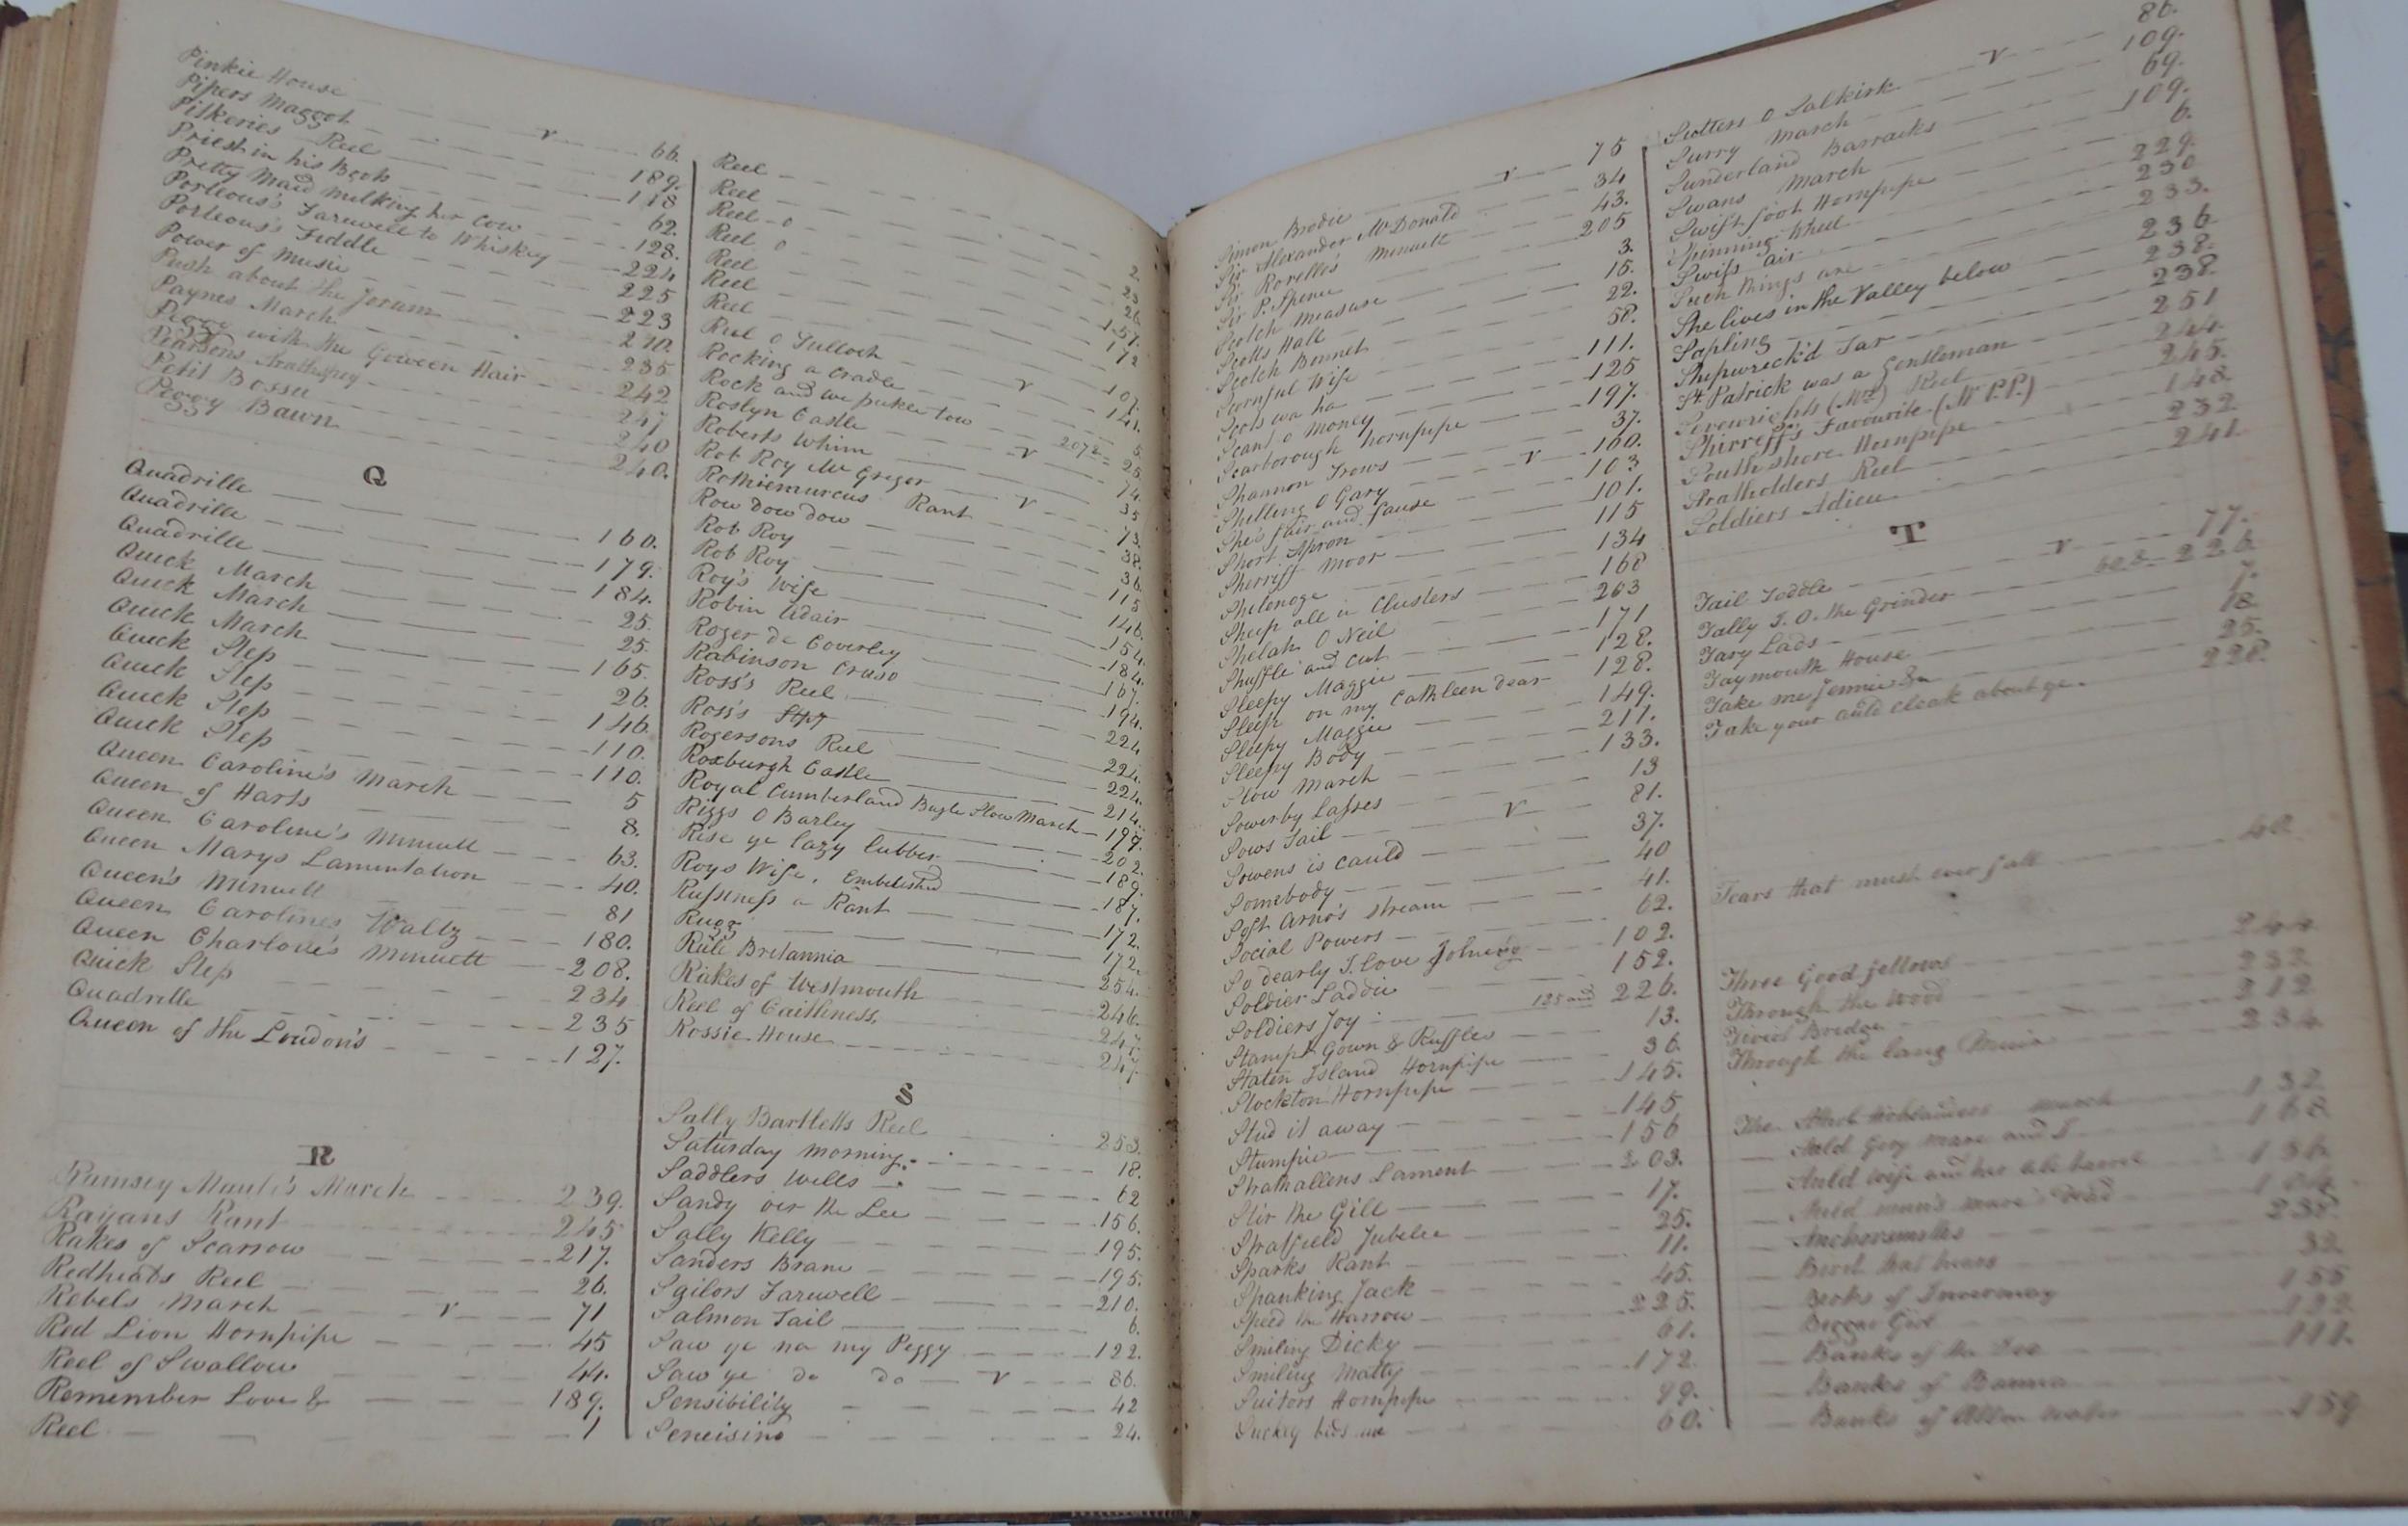 Pinkie House — v — 66.
Pipers Maggot — 189.
Pitkeries Reel — 118
Priest in his Book — 62.
Pretty Maid milking her Cow — 128.
Porteous's Farewell to Whiskey — 224
Porteous's Fiddle — 225
Power of Music — 223
Push about the Jorum — 210.
Paynes March — 235
Peggy with the Goween Hair — 242
Pearsons Strathspey — 247
Petit Bossu — 240
Peggy Bawn — 240.
Q
Quadrille — 160.
Quadrille — 179.
Quadrille — 184.
Quick March — 25.
Quick March — 25.
Quick March — 165.
Quick Step — 26.
Quick Step — 146.
Quick Step — 110.
Quick Step — 110.
Queen Caroline's March — 5
Queen of Harts — 8.
Queen Caroline's Minuett — 63.
Queen Marys Lamentation — 40.
Queen's Minuett — 81
Queen Carolines Waltz — 180.
Queen Charlotte's Minuett — 208.
Quick Step — 234
Quadrille — 235
Queen of the Loudon's — 127.
R
Ramsey Maule's March — 239.
Rayans Rant — 245
Rakes of Scarrow — 217.
Redheads Reel — 26.
Rebels March — v — 71
Red Lion Hornpipe — 45
Reel of Swallow — 44.
Remember Love & — 189.
Reel — 1
Reel — 2.
Reel — 23
Reel - o — 26
Reel o — 157.
Reel — 172
Reel
Reel
Reel o Tulloch — v — 107.
Rocking a Cradle — 141.
Rock and we pickle tow — 5.
Roslyn Castle — v — 207 2= 25
Roberts Whim — 74.
Rob Roy Mc Gregor — v — 35
Rothiemurcus Rant — 73.
Row dow dow — 38.
Rob Roy — 36
Rob Roy — 115
Roy's Wife — 146.
Robin Adair — 154.
Roger de Coverley — 184.
Rabinson Cruso — 167.
Ross's Reel — 194.
Ross's — 224
Rogersons Reel — 224.
Roxburgh Castle — 224.
Royal Cumberland Bugle Slow March — 214.
Riggs O Barley — 199.
Rise ye lazy lubber — 202.
Roys Wife, Embelished — 189.
Rufsness a Rant — 187.
Rugg — 172.
Rule Britannia — 172.
Rakes of Westmouth — 254.
Reel of Caithness. — 246.
Rossie House — 247.
S
Sally Bartletts Reel — 253.
Saturday Morning — 18.
Saddlers Wells — 62
Sandy over the Lee — 156.
Sally Kelly — 195.
Sanders Brane — 195.
Sailors Farewell — 210.
Salmon Tail — 6.
Saw ye na my Peggy — 122.
Saw ye do do — v — 86.
Sensibility — 42
Seneisino — 24.
Simon Brodie — v — 75
Sir Alexander Mc Donald — 34
Sir Rovelle's Minuett — 43.
Sir P. Spence — 205
Scotch Measure — 3.
Scotts Hall — 15.
Scotch Bonnet — 22.
Scornful Wife — 58.
Scots wa ha — 111.
Scant o Money — 125
Scarborough Hornpipe — 197.
Shannon Trows — 37.
Shilling O Gary — v — 160.
Shes fair and fause — 103
Short Apron — 101.
Sherriff Moor — 115
Shelenoge — 134
Sheep all in Clusters — 168
Shelah O Neil — 263
Shuffle and Cut — 171
Sleepy Maggie — 128.
Sleep on my Cathleen dear — 128.
Sleepy Maggie — 149.
Sleepy Body — 211.
Slow March — 133.
Sowerby Lafses — 13
Sows Tail — v — 81.
Sowens is cauld — 37.
Somebody — 40
Soft Arno's Stream — 41.
Social Powers — 62.
So dearly I. love Johnny — 102.
Soldier Laddie — 152.
Soldiers Joy — 125 and 226.
Stampt Gown & Ruffles — 13.
Staten Island Hornpipe — 36
Stockton Hornpipe — 145.
Stud it away — 145
Stumpie — 156
Strathallens Lament — 203.
Stir the Gill — 17.
Stratfield Jubelee — 25.
Sparks Rant — 11.
Spanking Jack — 45.
Speed the Harrow — 225.
Smiling Dicky — 61.
Smiling Matty — 172
Suitors Hornpipe — 99.
Suckey bids me — 60.
Scutters o Salkirk — v — 86.
Surry March — 109.
Sunderland Barracks — 69.
Swans March — 109.
Swift foot Hornpipe — 6.
Spinning Wheel — 229.
Swifs air — 230
Such things are — 233.
She lives in the Valley below — 236
Sapling — 238.
Shipwreck'd Tar — 238.
St. Patrick was a Gentleman — 251
Sivewrights (Mrs) Reel — 244.
Shirreff's Favourite (Mr P.P.) — 245.
South shore Hornpipe — 148
Stratholders Reel — 232
Soldiers Adieu — 241
T
Tail Toddle — v — 77.
Tally I. O. the Grinder — 226
Tary Lads — 7.
Taymouth House — 18
Take me Jennie &a — 25.
Take your auld cloak about ye. — 228.
Tears that must ever fall — 40
Three Good fellows — 244
Through the Wood — 232
Tiviot Bredge — 212
Through the lang Muir — 234
The March — 132
— Auld Grey Mare and I — 168
— Auld Wife and her — 136
— Auld man's mare's Dead — 104
— Anchorsmiths — 238.
— — 32
— Berks of Invermay — 155
— Beggar Girl — 122
— Banks of the Dee — 111.
— Banks of Banna
— Banks of Allan Water — 159